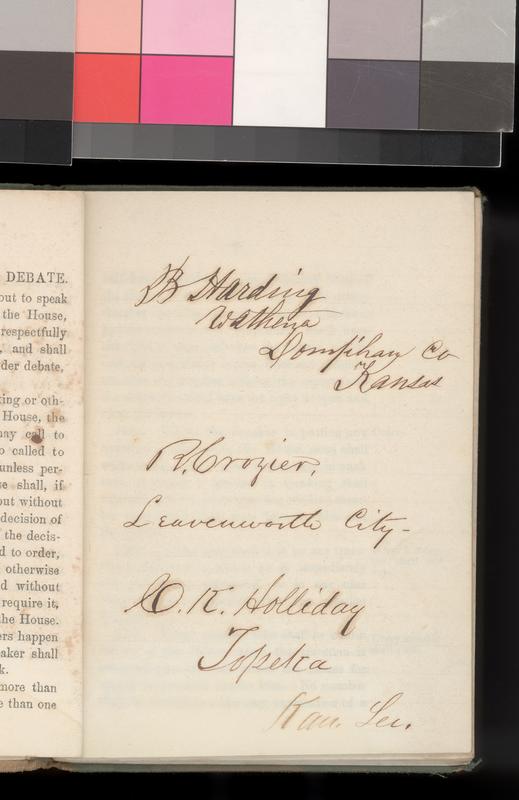 DEBATE.
out to speak
the House,
respectfully
, and shall
der debate,
king or oth-
House, the
may call to
o called to
unless per-
se shall, if
out without
decision of
the decis-
d to order,
otherwise
d without
require it,
the House.
ers happen
eaker shall
k.
more than
e than one
B Harding
Wathena
Doniphan Co
Kansas
R. Crozier.
Leavenworth City-
C. K. Holliday
Topeka
Kan. Ter.